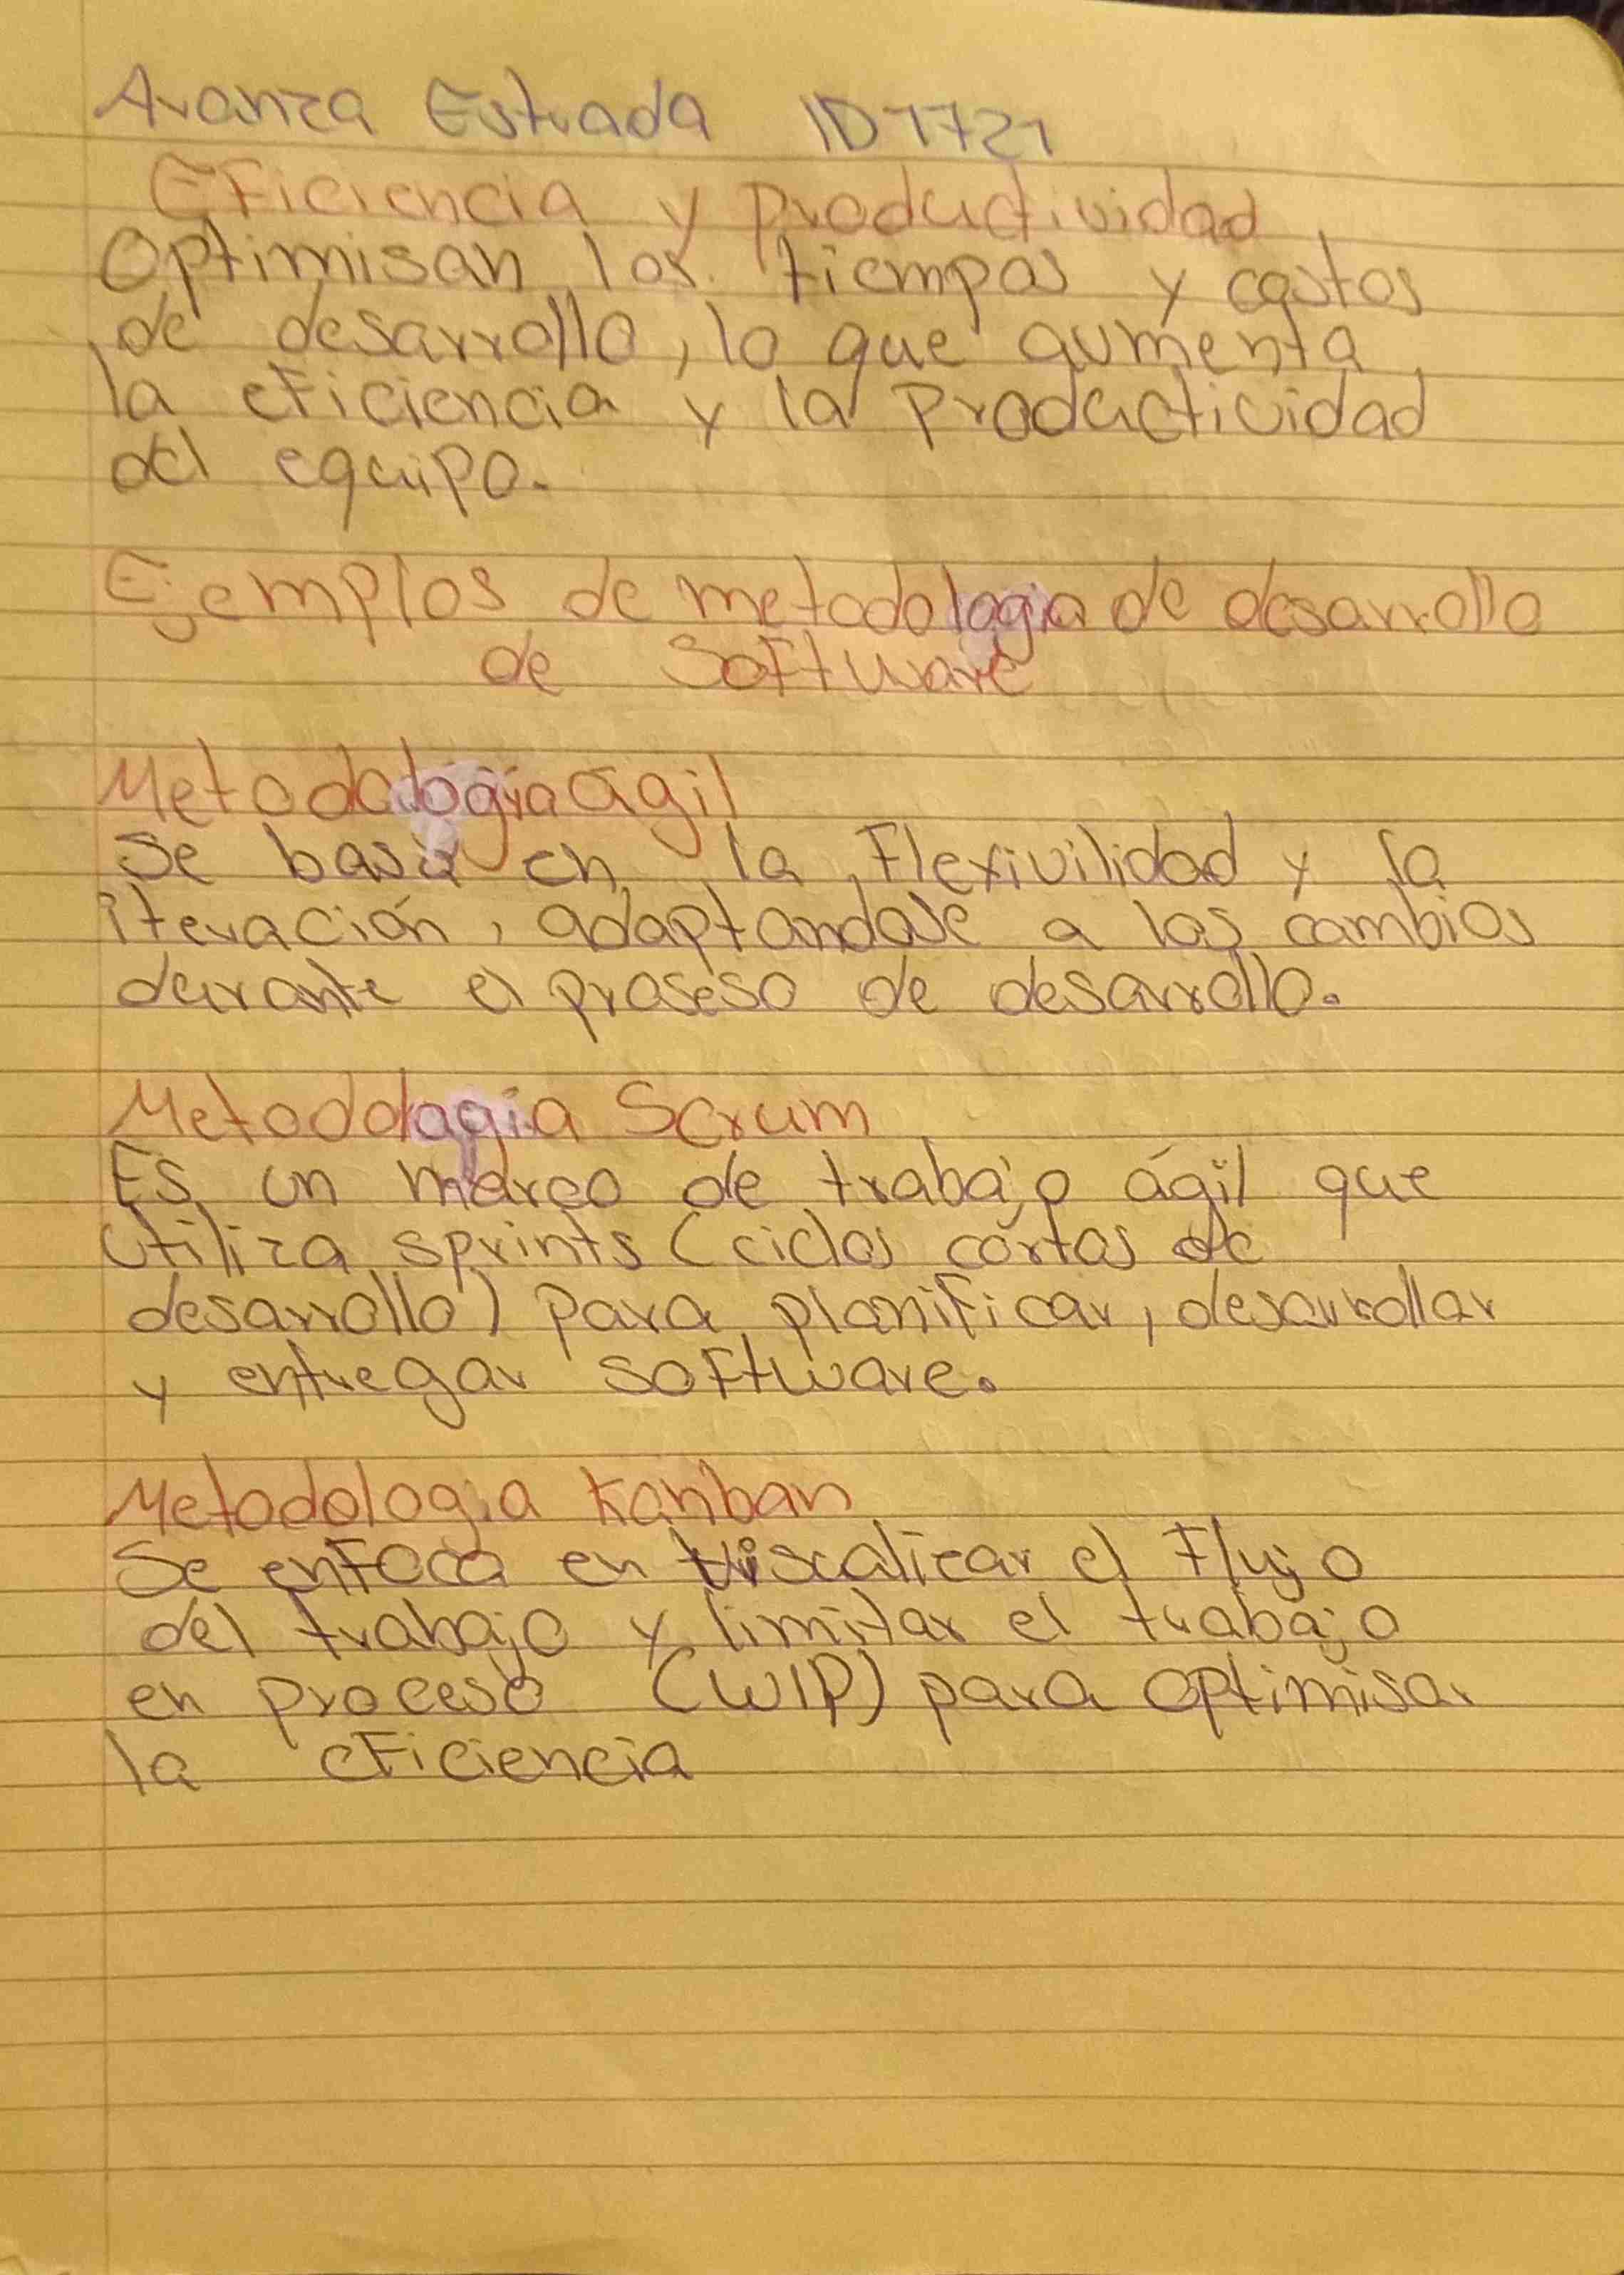 Avanza Estrada ID 1721
Eficiencia y productividad
Optimisan los tiempos y costos
de desarrollo, lo que aumenta
la eficiencia y la productividad
del equipo.
Ejemplos de metodologia de desarrollo
de Software
Metodología ágil
Se basa en la flexivilidad y la
iteración, adaptandose a los cambios
durante el proseso de desarrollo.
Metodologia Scrum
Es un marco de trabajo ágil que
utiliza sprints (ciclos cortos de
desarrollo) para planificar, desarrollar
y entregar software.
Metodologia Kanban
Se enfoca en viscalizar el flujo
del trabajo y limitar el trabajo
en proceso (WIP) para optimisar
la eficiencia